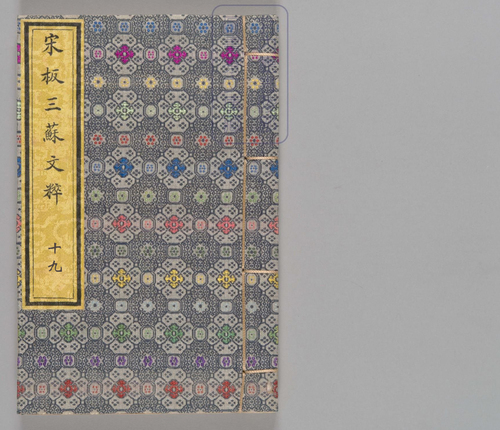 宋板三蘇文粹
十九